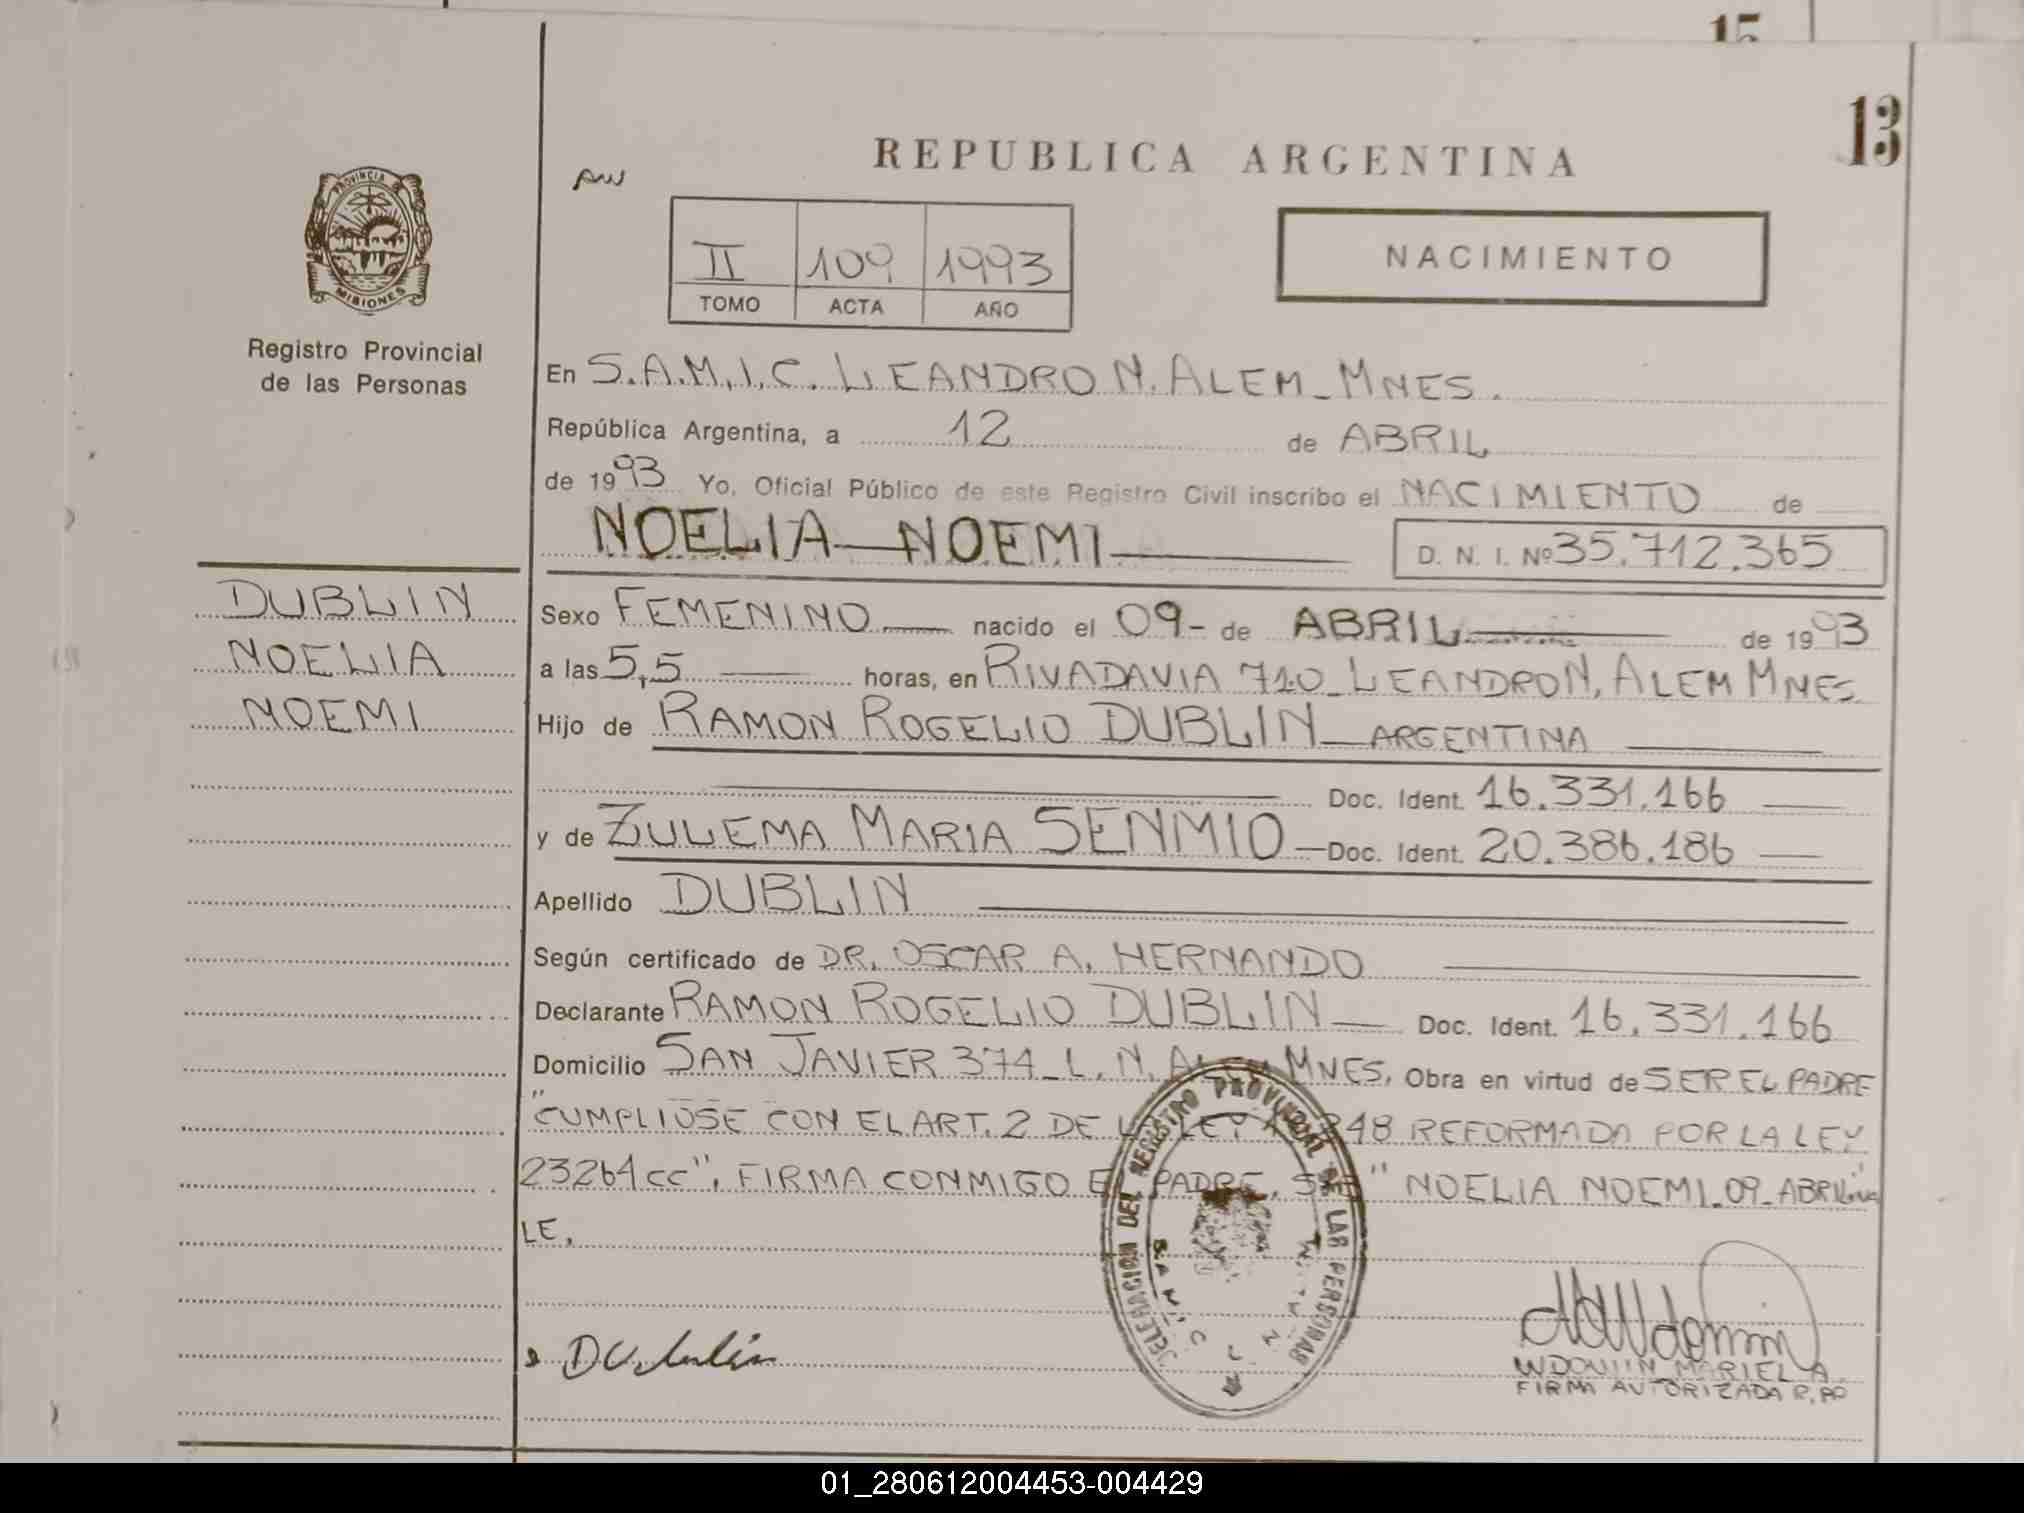 15
13
REPUBLICA ARGENTINA
PROVINCIA DE
MISIONES
Registro Provincial
de las Personas
II 109 1993
TOMO ACTA AÑO
NACIMIENTO
En S.A.M.I.C. LEANDRO N. ALEM_MNES.
República Argentina, a 12 de ABRIL
de 1993 Yo, Oficial Público de este Registro Civil inscribo el NACIMIENTO de
NOELIA—NOEMI— D. N. I. Nº 35.712.365
DUBLIN
NOELIA
NOEMI
Sexo FEMENINO— nacido el 09- de ABRIL— de 1993
a las 5,5 — horas, en RIVADAVIA 710_LEANDRO N. ALEM MNES.
Hijo de RAMON ROGELIO DUBLIN—ARGENTINA—
Doc. Ident. 16.331.166 —
y de ZULEMA MARIA SENMIO —Doc. Ident. 20.386.186 —
Apellido DUBLIN —
Según certificado de DR. OSCAR A. HERNANDO —
Declarante RAMON ROGELIO DUBLIN— Doc. Ident. 16.331.166
Domicilio SAN JAVIER 374_L. N. ALEM MNES. Obra en virtud de SER EL PADRE
"CUMPLIOSE CON EL ART. 2 DE LA LEY 348 REFORMADA POR LA LEY
23264 CC". FIRMA CONMIGO EL PADRE. "NOELIA NOEMI_09_ABRIL" VA
LE.
DELEGACION DEL REGISTRO PROVINCIAL DE LAS PERSONAS
MARIEL A.
FIRMA AUTORIZADA R.PP
01_280612004453-004429